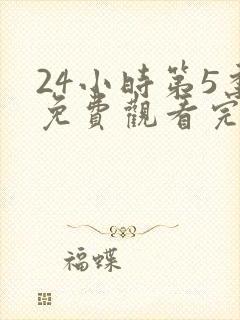 24小時第5季
免費觀看完
福蝶